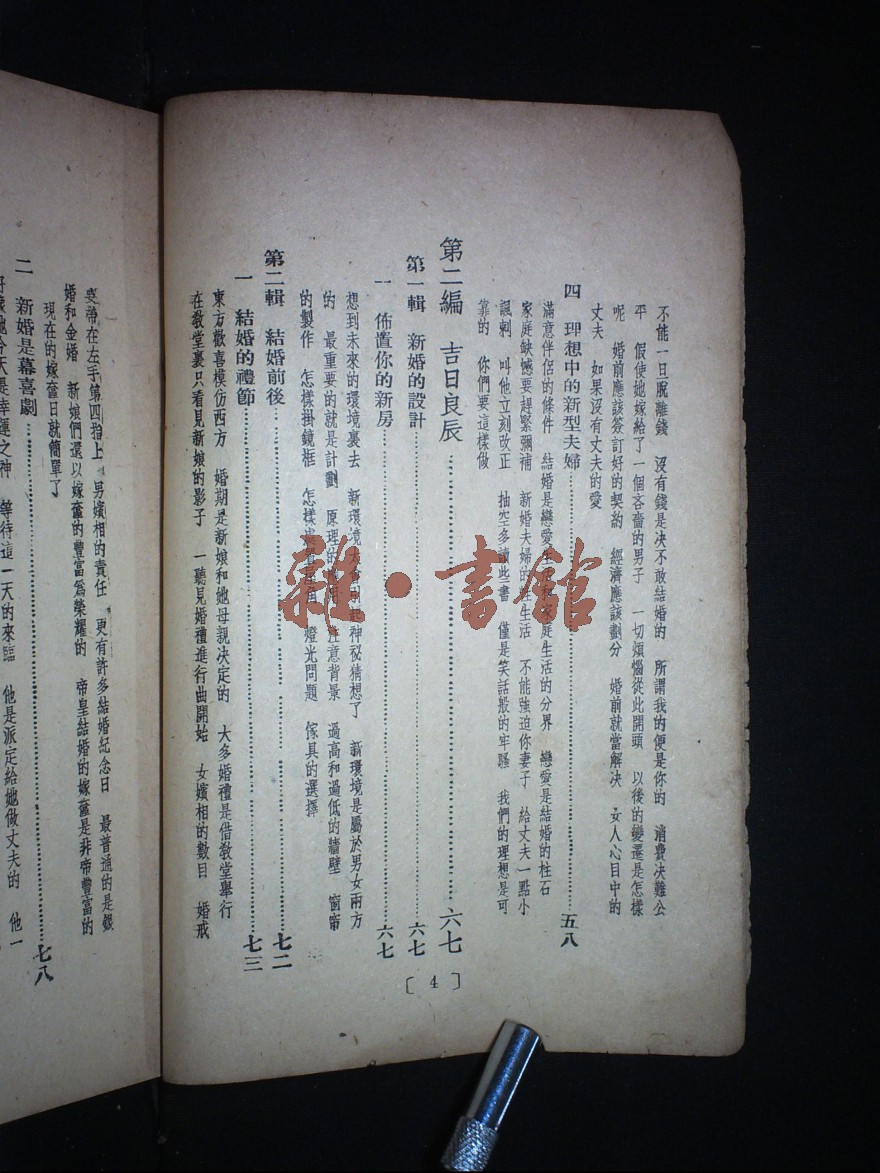 不能一日脫離錢　沒有錢是決不敢結婚的　所謂我的便是你的　消費決難公
平　假使她嫁給了一個吝嗇的男子　一切煩惱從此開頭　以後的變遷是怎樣
呢　婚前應該簽訂好的契約　經濟應該劃分　婚前就當解決　女人心目中的
丈夫　如果沒有丈夫的愛
四　理想中的新型夫婦……五八
滿意伴侶的條件　結婚是戀愛生活和家庭生活的分界　戀愛是結婚的柱石
家庭缺憾要趕緊彌補　新婚夫婦的性生活　不能強迫你妻子　給丈夫一點小
諷刺　叫他立刻改正　抽空多讀些書　僅是笑話般的牢騷　我們的理想是可
靠的　你們要這樣做
第二編　吉日良辰……六七
第一輯　新婚的設計……六七
一　佈置你的新房……六七
想到未來的環境裏去　新環境　神祕猜想了　新環境是屬於男女兩方
的　最重要的就是計劃　原理的　注意背景　過高和過低的牆壁　窗帘
的製作　怎樣掛鏡框　怎樣　燈光問題　傢具的選擇
第二輯　結婚前後……七二
一　結婚的禮節……七三
東方歡喜模仿西方　婚期是新娘和她母親決定的　大多婚禮是借敎堂舉行
在敎堂裏只看見新娘的影子　一聽見婚禮進行曲開始　女嬪相的數目　婚戒
〔4〕
要帶在左手第四指上　男嬪相的責任　更有許多結婚紀念日　最普通的是銀
婚和金婚　新娘們還以嫁奩的豐富爲榮耀的　帝皇結婚的嫁奩是非常豐富的
現在的嫁奩日就簡單了
二　新婚是幕喜劇……七八
今天是幸運之神　等待這一天的來臨　他是派定給她做丈夫的　他一
雜·書館